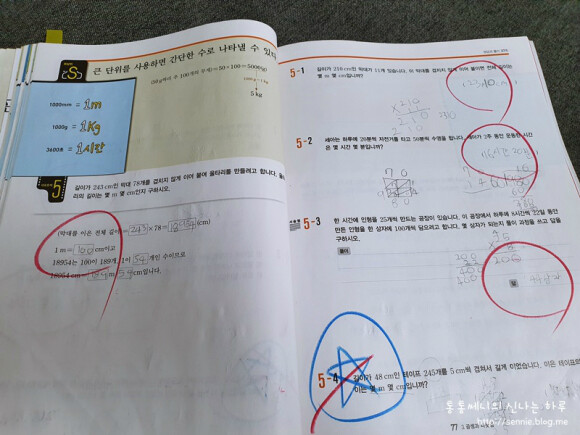 큰 단위를 사용하면 간단한 수로 나타낼 수 있다
(50 g짜리 추 100개의 무게)=50×100=5000(g)
1000 g=1 kg
5 kg
1000mm = 1m
1000g = 1Kg
3600초 = 1시간
5
길이가 243 cm인 막대 78개를 겹치지 않게 이어 붙여 울타리를 만들려고 합니다. 울타
리의 길이는 몇 m 몇 cm인지 구하시오.
(막대를 이은 전체 길이)=243×78=18954(cm)
1 m=100 cm이고
18954는 100이 189개, 1이 54개인 수이므로
18954 cm=189 m 54 cm입니다.
5-1
길이가 210 cm인 막대가 11개 있습니다. 이 막대를 겹치지 않게 이어 붙이면 전체 길이는
몇 m 몇 cm입니까?
5-2
세아는 하루에 20분씩 자전거를 타고 50분씩 수영을 합니다. 세아가 2주 동안 운동한 시간
은 몇 시간 몇 분입니까?
16시간 20분
5-3
한 시간에 인형을 25개씩 만드는 공장이 있습니다. 이 공장에서 하루에 8시간씩 22일 동안
만든 인형을 한 상자에 100개씩 담으려고 합니다. 몇 상자가 되는지 풀이 과정을 쓰고 답을
구하시오.
풀이
답
5-4
길이가 48 cm인 테이프 245개를 5 cm씩 겹쳐서 길게 이었습니다. 이은 테이프의
이는 몇 m 몇 cm입니까?
77
통통쎄니의 신나는 하루
http://sennie.blog.me